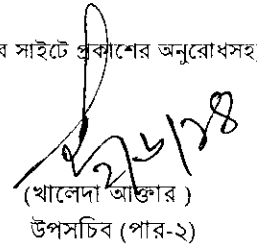 ব সাইটে প্রকাশের অনুরোধসহ
(খালেদা আক্তার )
উপসচিব (পার-২)